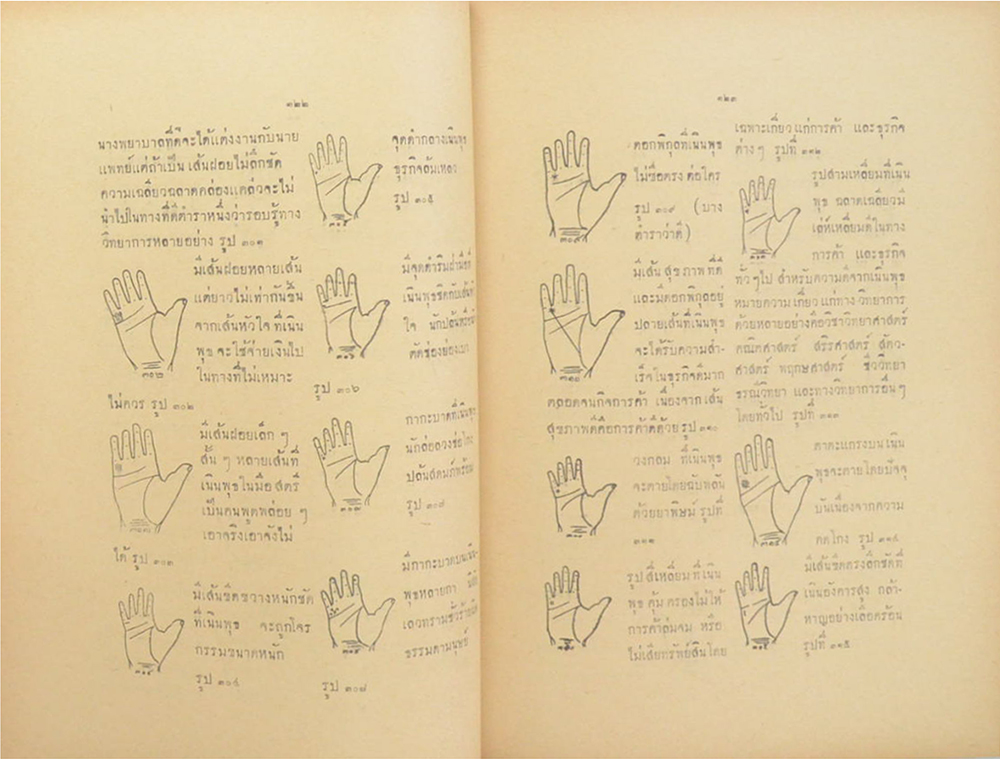 ๑๒๒
นางพยาบาลที่ดีจะได้แต่งงานกับนาย
แพทย์แต่ถ้าเป็น เส้นฝอยไม่ลึกชัด
ความเฉลียวฉลาดคล่องแคล่วจะไม่
นำไปในทางที่ดีตำราหนึ่งว่ารอบรู้ทาง
วิทยาการหลายอย่าง รูป ๓๐๑
มีเส้นฝอยหลายเส้น
แต่ยาวไม่เท่ากันขึ้น
จากเส้นหัวใจ ที่เนิน
พุธ จะใช้จ่ายเงินไป
ในทางที่ไม่เหมาะ
ไม่ควร รูป ๓๐๒
๓๐๒
มีเส้นฝอยเล็ก ๆ
สั้น ๆ หลายเส้นที่
เนินพุธในมือ สตรี
เป็นคนพูดพล่อย ๆ
เอาจริงเอาจังไม่
ได้ รูป ๓๐๓
มีเส้นขีดขวางหนักชัด
ที่เนินพุธ จะถูกโจร
กรรมขนาดหนัก
รูป ๓๐๔
จุดดำกลางเนินพุธ
ธุรกิจล้มเหลว
รูป ๓๐๕
มีจุดดำริมฝ่ามือที่
เนินพุธชิดกับเส้นหัว
ใจ นักปล้นตัว
ตัดช่องย่องเบา
รูป ๓๐๖
๓๐๖
กากะบาดที่เนินพุธ
นักล่อลวงช่อโกง
ปลิ้นปล้อน
รูป ๓๐๗
๓๐๗
มีกากะบาดบนเนิน
พุธหลายกา
เลวทรามชั่วร้าย
ธรรมดามนุษย์
รูป ๓๐๘
๑๒๓
ดอกพิกุลที่เนินพุธ
ไม่ซื่อตรง ต่อใคร
รูป ๓๐๙ (บาง
ตำราว่าดี)
๓๐๙
มีเส้น สุขภาพ ที่ดี
และมีดอกพิกุลอยู่
ปลายเส้นที่เนินพุธ
จะได้รับความสำ-
เร็จในธุรกิจดีมาก
ตลอดจนกิจการค้า เนื่องจากเส้น
สุขภาพดีคือการค้าดีด้วย รูป ๓๑๐
๓๑๐
วงกลม ที่เนินพุธ
จะตายโดยฉับพลัน
ด้วยยาพิษม์ รูปที่
๓๑๑
๓๑๑
รูป สี่เหลี่ยม ที่เนิน
พุธ คุ้ม ครองไม่ให้
การค้าล่มจม หรือ
ไม่เสียทรัพย์สินโดย
เฉพาะเกี่ยวแก่การค้า และธุรกิจ
ต่างๆ รูปที่ ๓๑๒
รูปสามเหลี่ยมที่เนิน
พุธ ฉลาดเฉลียวมี
เล่ห์เหลี่ยมดีในทาง
การค้า และธุรกิจ
ทั่วๆไป สำหรับความดีจากเนินพุธ
หมายความ เกี่ยว แก่ทาง วิทยาการ
ด้วยหลายอย่างคือวิชาวิทยาศาสตร์
คณิตศาสตร์ สรีรศาสตร์ สัตว-
ศาสตร์ พฤกษศาสตร์ ชีววิทยา
ธรณีวิทยา และทางวิทยาการอื่นๆ
โดยทั่วไป รูปที่ ๓๑๓
๓๑๓
ตาตะแกรงบนเนิน
พุธจะตายโดยปัจจุ
บันเนื่องจากความ
คดโกง รูป ๓๑๔
๓๑๔
มีเส้นขีดตรงลึกชัดที่
เนินอังคารสูง กล้า-
หาญอย่างเลือดร้อน
รูปที่ ๓๑๕
๓๑๕